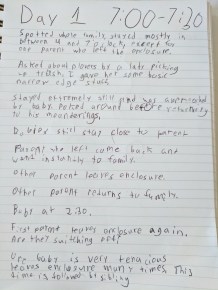 Day 1 7:00-7:30
Spotted whole family stayed mostly in
between 4 and 7 o'clock, except for
one parent who left the enclosure.
Asked about plovers by a lady picking
up trash, I gave her some basic
narrow edge stuff.
Stayed extremely still and was approached
by baby. Peeped around before returning
to his meanderings.
Babies still stay close to parent
Parent who left came back and
went instantly to family.
Other parent leaves enclosure.
Other parent returns to family.
Baby at 2:30.
First parent leaves enclosure again.
Are they switching off?
One baby is very tenacious
leaves enclosure many times. This
time is followed by sibling